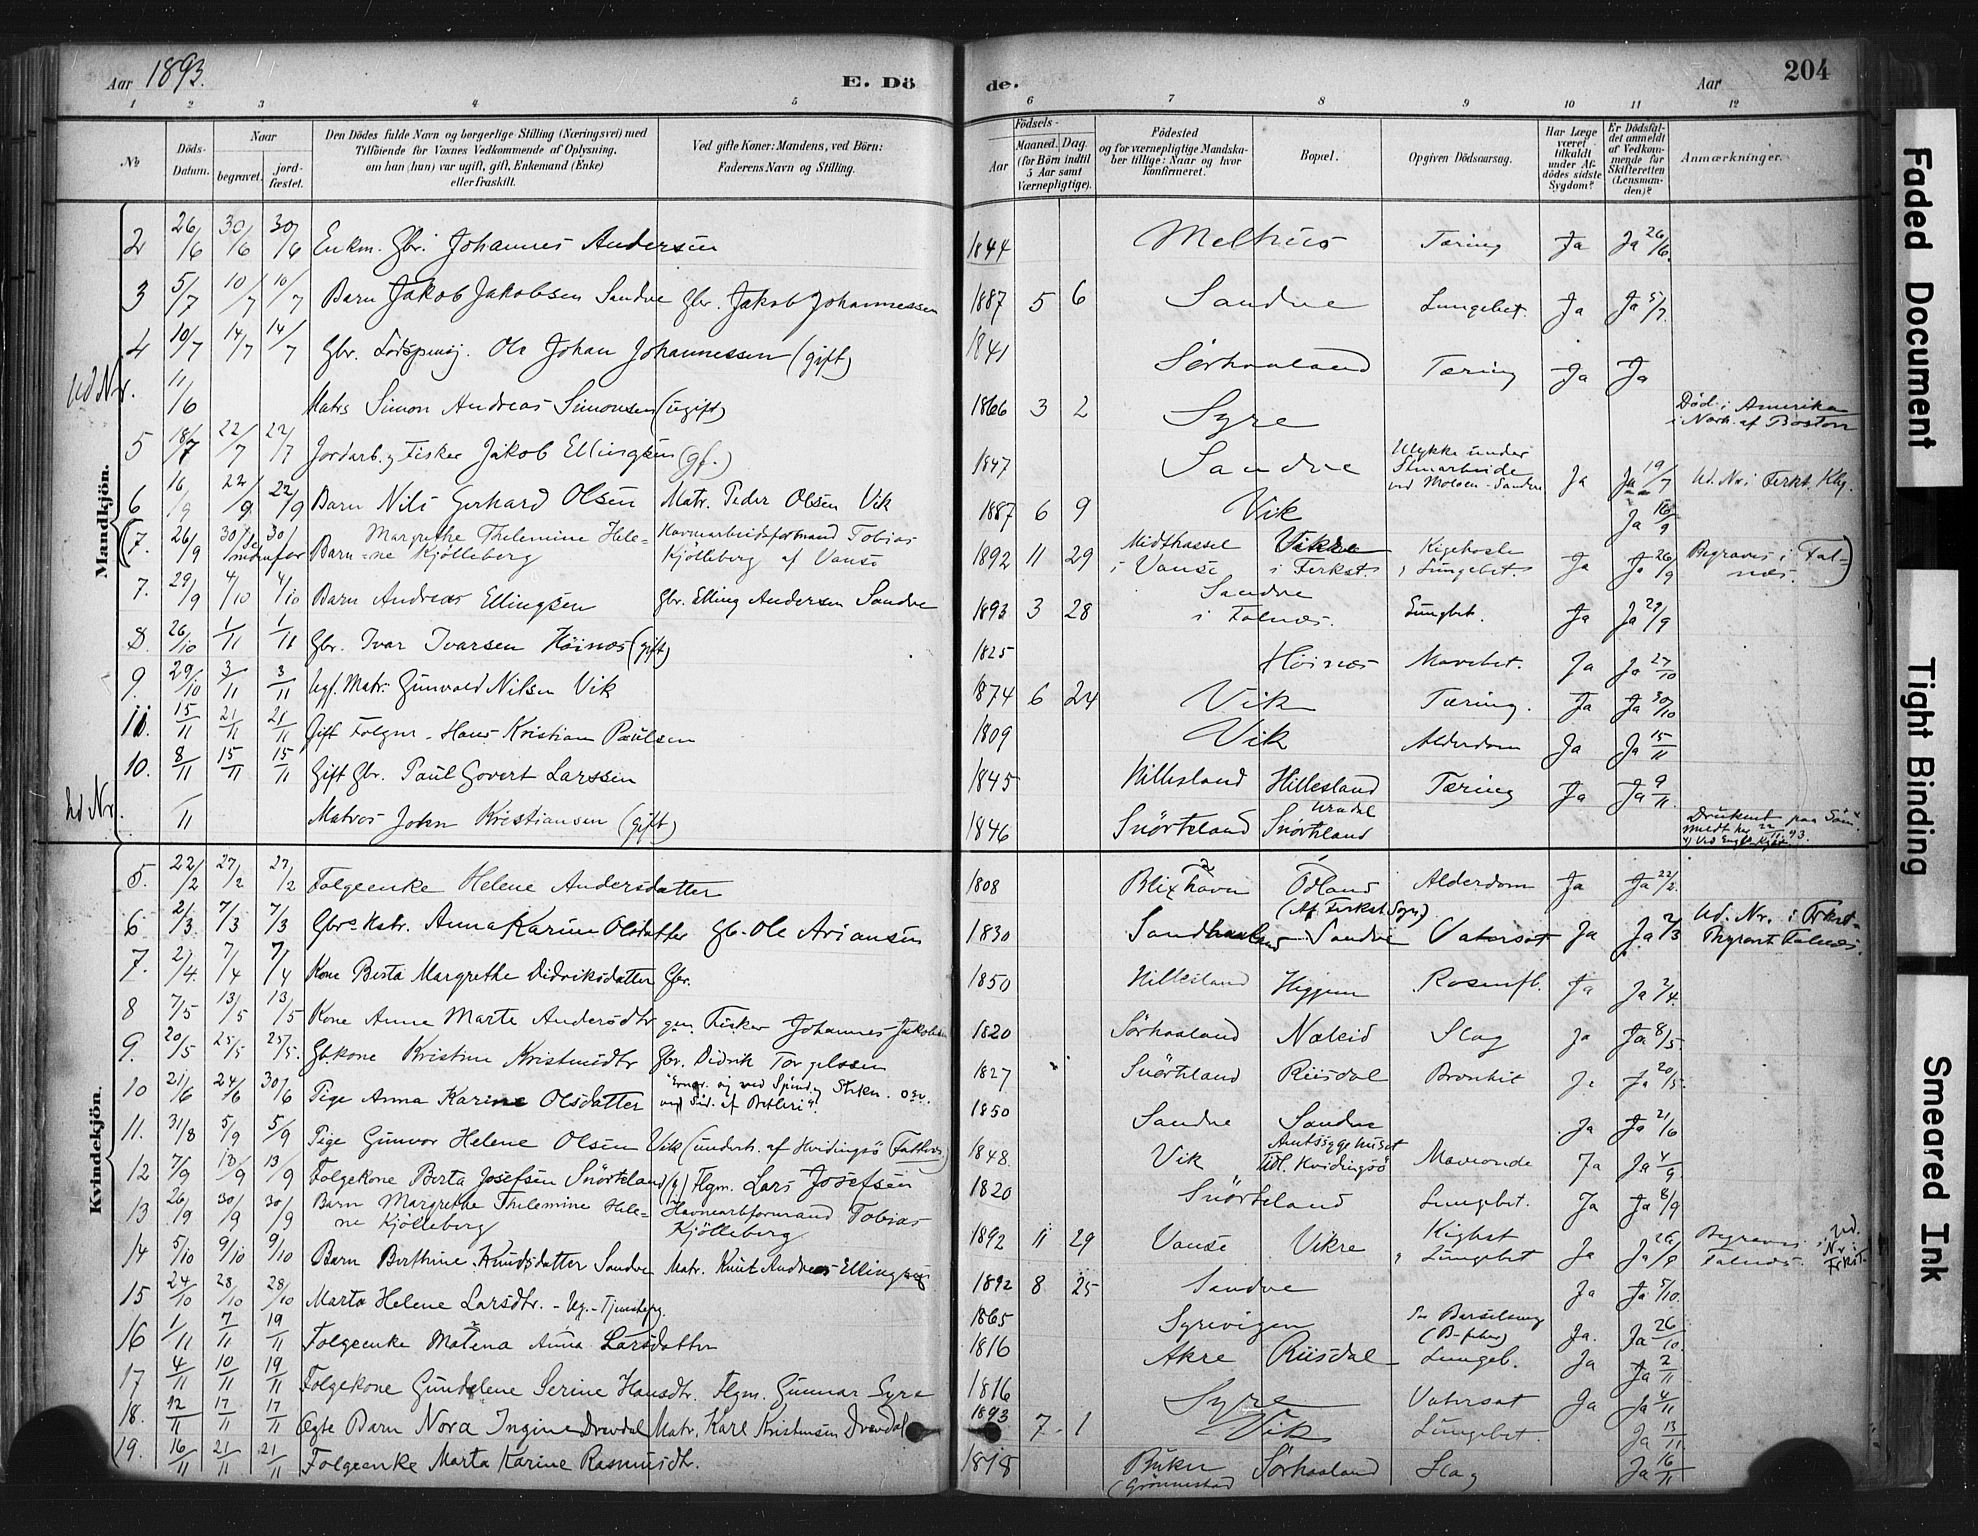 Aar 1893.
E. Dö
de.
Aar
204
1 2 3 4 5 6 7 8 9 10 11 12
№
Döds-Datum.
Naar
begravet.
jord-fæstet.
Den Dödes fulde Navn og borgerlige Stilling (Næringsvei) med
Tilföiende for Voxnes Vedkommende af Oplysning,
om han (hun) var ugift, gift, Enkemand (Enke)
eller fraskilt.
Ved gifte Koner: Mandens, ved Börn:
Faderens Navn og Stilling.
Födsels-
Aar
Maaned. Dag.
(for Börn indtil
5 Aar samt
Værnepligtige).
Födested
og for værnepligtige Mandska-
ber tillige: Naar og hvor
konfirmeret.
Bopæl.
Opgiven Dödsaarsag.
Har Læge
været
tilkaldt
under Af-
dödes sidste
Sygdom?
Er Dödsfal-
det anmeldt
af Vedkom-
mende for
Skifteretten
(Lensman-
den)?
Anmærkninger.
Mandkjön.
2 26/6 30/6 30/6 Enkm. Gbr. Johannes Andersen 1844 Melhus Tæring Ja Ja 26/6.
3 5/7 10/7 10/7 Barn Jakob Jakobsen Sandve Gbr. Jakob Johannessen 1887 5 6 Sandve Lungebet. Ja Ja 5/7.
4 10/7 14/7 14/7 Gbr. Ole Johan Johannessen (gift) 1841 Sörhaaland Tæring Ja Ja
Ud Nr. 11/6 Matrs Simon Andreas Simonsen (ugift) 1866 3 2 Syre Död i Amerika
i Nærh. af Boston
5 18/7 22/7 22/7 Jordarb. og Fisker Jakob Ellingsen (gf.) 1847 Sandve Ulykke under
ved Moloen-Sandve Ja Ja 19/7 Ud. Nr. i Ferkt. Klg.
6 16/9 22/9 22/9 Barn Nils Gerhard Olsen Matr. Peder Olsen Vik 1887 6 9 Vik Ja 16/9
(7. 26/9 30/9 30/9 Barn Margrethe Thelemine Hele-
ne Kjölleberg Havnearbeidsformand Tobias
Kjölleberg af Vanse 1892 11 29 Midthassel
i Vanse Vikre
i Ferkst. Kigehoste
, Lungebet. Ja Ja 26/9 Begraves i Fal-
næs.)
7. 29/9 4/10 4/10 Barn Andreas Ellingsen Gbr. Elling Andersen Sandve 1893 3 28 Sandve
i Falnæs. Lungbet. Ja Ja 29/9
8. 26/10 1/11 1/11 Gbr. Ivar Ivarsen Höinæs (gift) 1825 Höinæs Mavebet. Ja Ja 27/10
9. 29/10 3/11 3/11 Ugf. Matr. Gunvald Nilsen Vik 1874 6 24 Vik Tæring. Ja Ja 30/10
11. 15/11 21/11 21/11 Gift Folgm. Hans Kristian Paulsen 1809 Vik Alderdom Ja Ja 15/11
10. 8/11 15/11 15/11 Gift Gbr. Paul Govert Larssen 1845 Hillesland Hillesland Tæring Ja Ja 9/11.
Ud Nr. /11 Matros John Kristiansen (gift) 1846 Snörteland Snörteland Druknet paa Söm.
Meldt her 22/11 93.
Kvindekjön.
5. 22/2 27/2 27/2 Folgeenke Helene Andersdatter 1808 Blixhavn Ödland
(Af Ferkst. Sogn). Alderdom Ja Ja 22/2.
6 2/3. 7/3 7/3 Gbrs. Kstr. Anna Karine Olsdatter Gb. Ole Ariansen 1830 Sandve Vatersot Ja Ja 2/3 Ud. Nr. i Frkst-
Falnæs.
7. 2/4. 7/4 7/4 Kone Berta Margrethe Didriksdatter Gbr. 1850 Hillesland Higgem Rosenfb. Ja Ja 2/4.
8 7/5 13/5 13/5 Kone Anna Marte Andersdtr gm. Fisker Johannes Jakobsen 1820 Sörhaaland Nakeid Slag Ja Ja 8/5.
9. 20/5 25/5 25/5. Gbkone Kristine Kristensdtr Gbr. Didrik Torgelssen 1827 Snörteland Riisdal Bronkit Ja Ja 20/5.
10 21/6 24/6 30/6 Pige Anna Karine Olsdatter 1850 Sandve Sandve Ja Ja 21/6
11. 31/8 5/9 5/9 Pige Gunvor Helene Olsen Vik (underh. af Hvidingsö 1848. Vik Amtsygehuset
Hvidingsö Ja Ja 4/9
12 7/9 13/9 13/9 Folgekone Berta Josefsen Snörteland Flgm. Lars Josefsen 1820 Snörteland Lungebet. Ja Ja 8/9
13 26/9 30/9 30/9 Barn Margrethe Thelemine Hele-
ne Kjölleberg Havnearbformand Tobias
Kjölleberg 1892 11 29 Vanse Vikre Kighst
, Lungebet Ja Begraves i
Falnæs. Ud.
Nr. i
Frkst.
14 5/10 9/10 9/10 Barn Berthine Knudsdatter Sandve Matr. Knut Andreas Ellingsen 1892 8 25 Sandve Ja Ja 5/10.
15 24/10 28/10 28/10 Marta Helene Larsdtr. - Ug. - Tjenstepg. 1865 Syrevigen Barselseng Ja. Ja 26/10
16 1/11 7/11 19/11 Folgeenke Malena Anna Larsdatter 1816 Akre Riisdal Lungeb. Ja Ja 2/11
17 4/11 10/11 19/11 Folgekone Gundelene Serine Hansdtr. Flgm. Gunnar Syre 1816 Syre Vatersot Ja Ja 4/11
18. 12/11 17/11 17/11 Ægte Barn Nora Ingine Drevdal Matr. Karl Kristensen Drevdal 1893 7 1 Vik Lungebet. Ja 13/11.
19. 16/11 21/11 21/11 Folgeenke Marta Karine Rasmusdtr. 1818 Buken
(Grönnestad Sörhaaland Slag Ja 16/11
Faded Document
Tight Binding
Smeared Ink